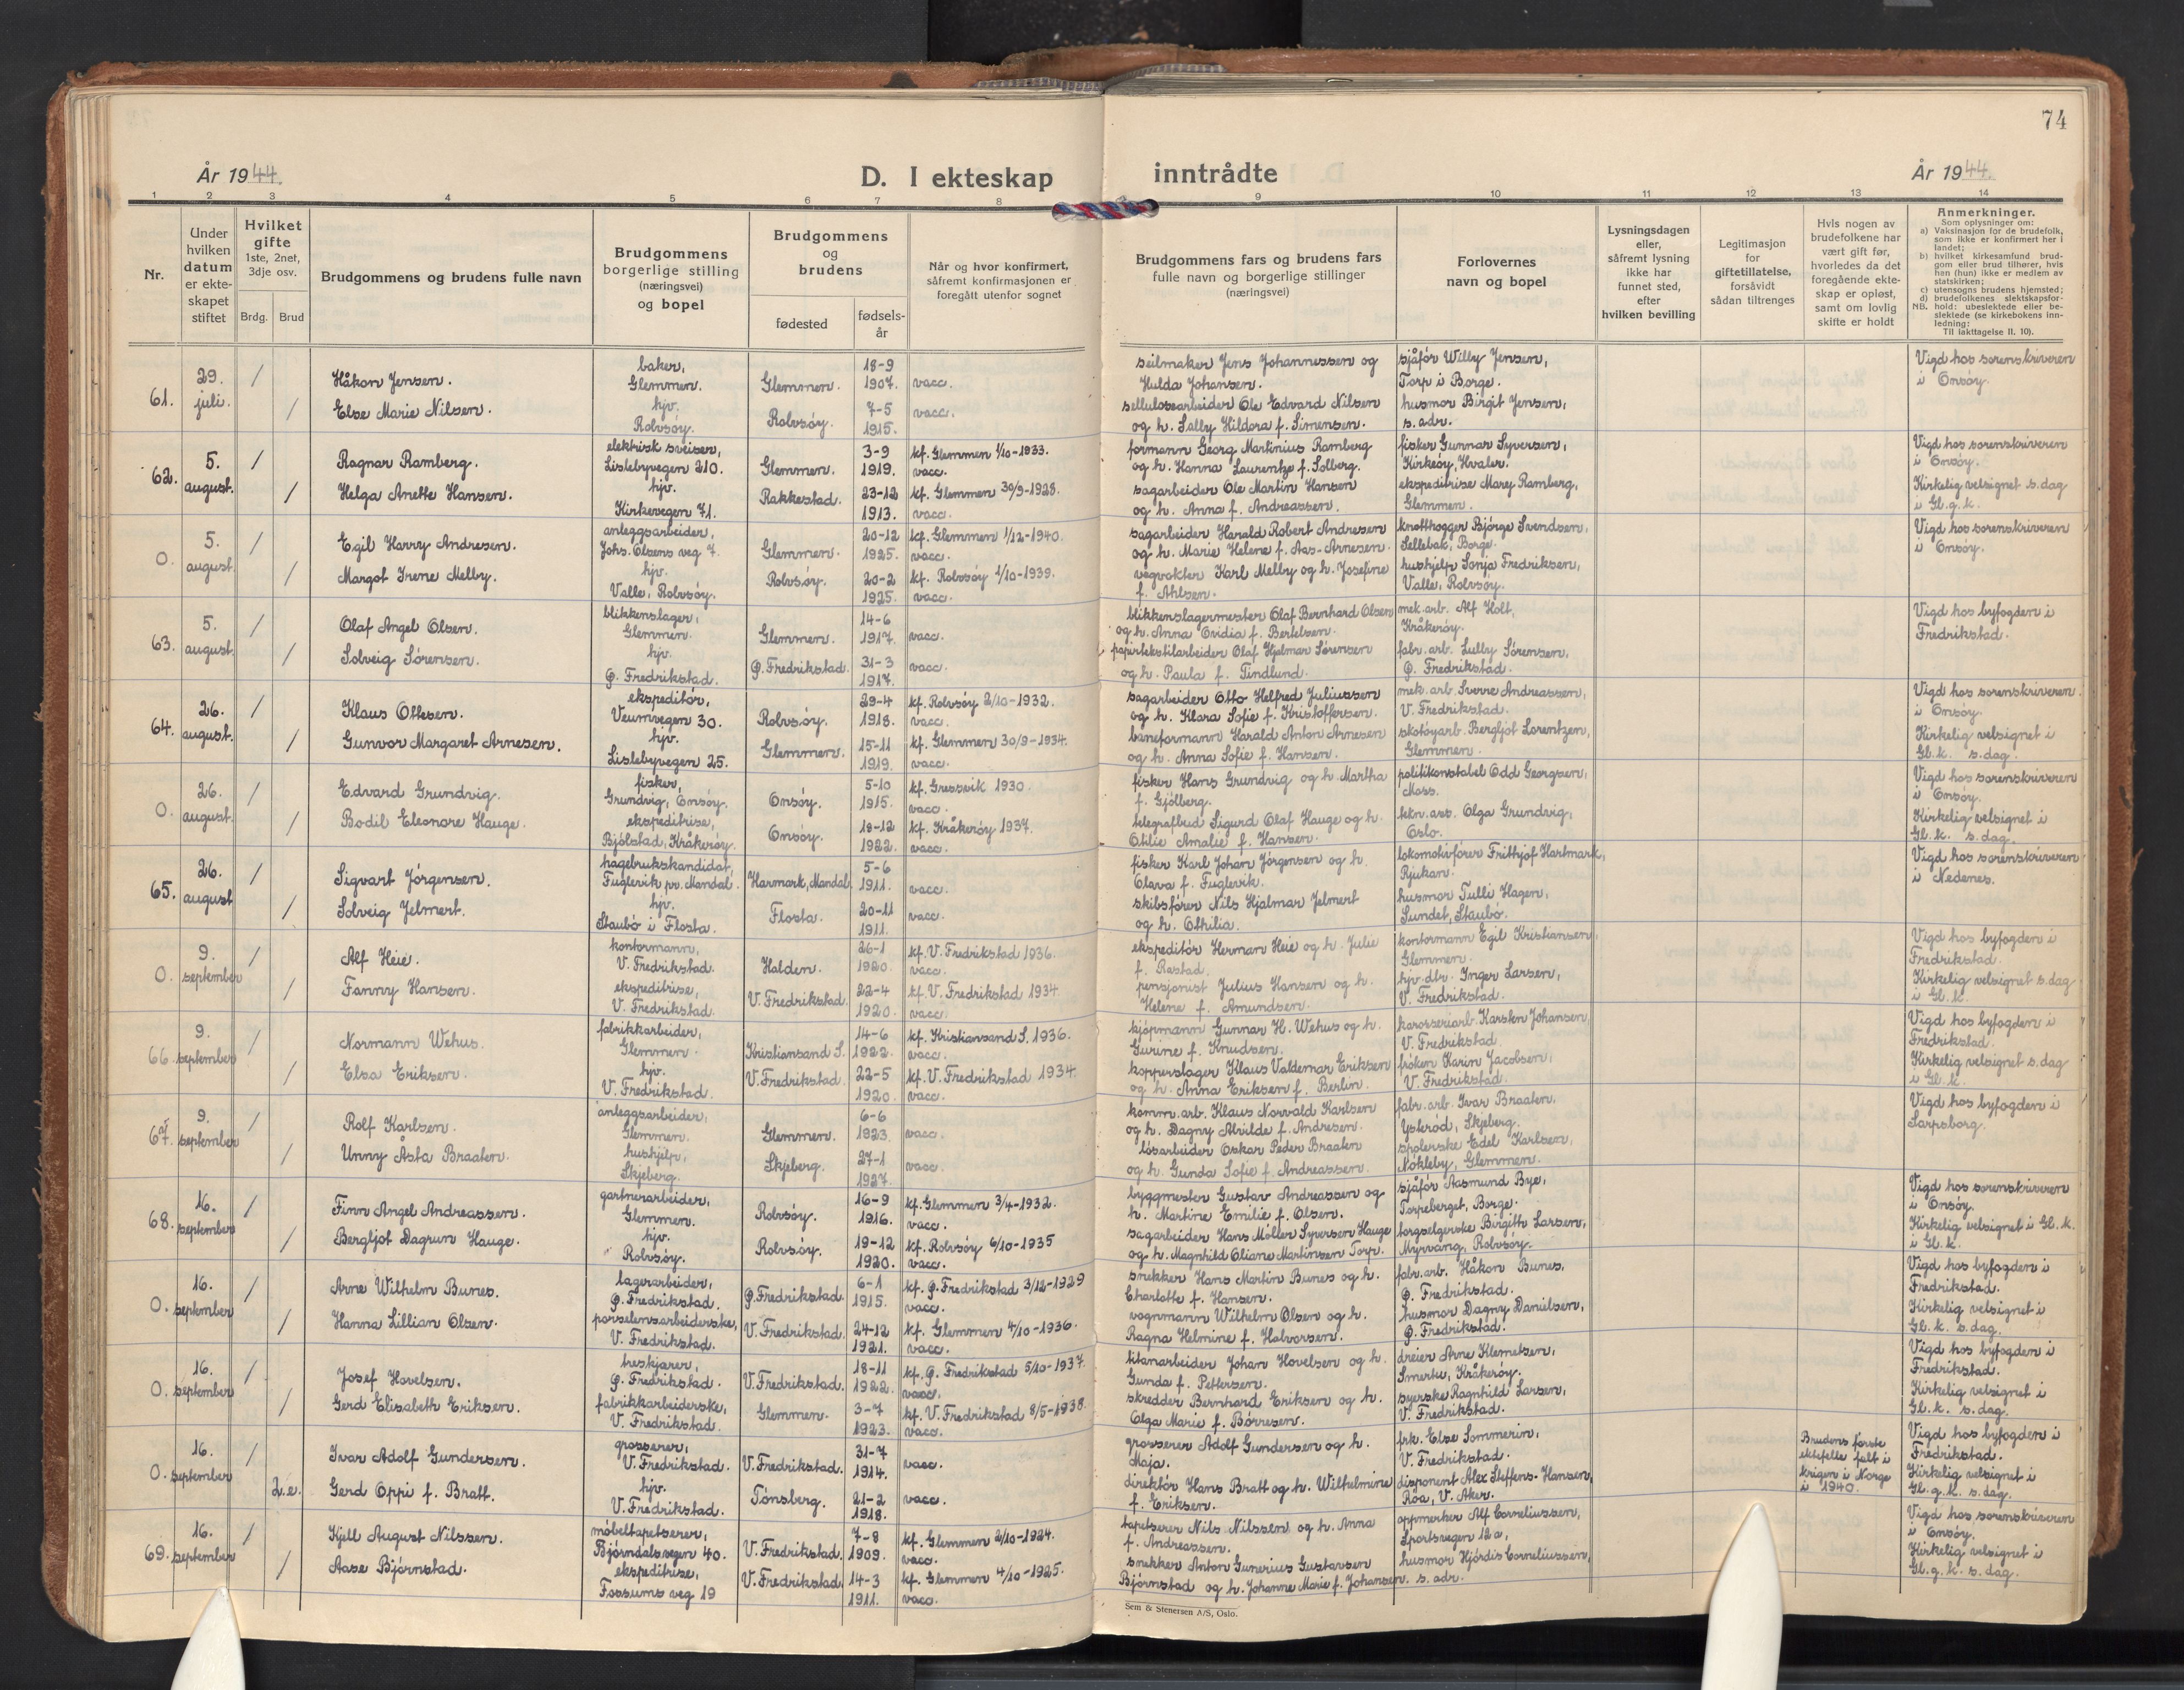 74
År 1944.
D. I ekteskap inntrådte
År 1944.
1 2 3 4 5 6 7 8 9 10 11 12 13 14
Nr.
Under hvilken datum er ekteskapet stiftet
Hvilket gifte 1ste, 2net, 3dje osv.
Brdg. Brud
Brudgommens og brudens fulle navn
Brudgommens borgerlige stilling (næringsvei) og bopel
Brudgommens og brudens
fødested
fødselsår
Når og hvor konfirmert, såfremt konfirmasjonen er foregått utenfor sognet
Brudgommens fars og brudens fars fulle navn og borgerlige stillinger (næringsvei)
Forlovernes navn og bopel
Lysningsdagen eller, såfremt lysning ikke har funnet sted, efter hvilken bevilling
Legitimasjon for giftetillatelse, forsåvidt sådan tiltrenges
Hvis nogen av brudefolkene har vært gift før, hvorledes da det foregående ekteskap er opløst, samt om lovlig skifte er holdt
Anmerkninger.
Som oplysninger om:
a) Vaksinasjon for de brudefolk, som ikke er konfirmert her i landet;
b) hvilket kirkesamfund brudgom eller brud tilhører, hvis han (hun) ikke er medlem av statskirken;
c) utensogns brudens hjemsted;
d) brudefolkenes slektskapsforhold: ubeslektede eller beslektede (se kirkebokens innledning:
NB. Til iakttagelse II. 10).
61. 29. juli. / Håkon Jensen. baker, Glemmen. Glemmen. 18-9 1907. vacc. seilmaker Jens Johannessen og Hulda Johansen. sjåfør Willy Jensen, Torp i Borge. Vigd hos sorenskriveren i Onsøy.
/ Else Marie Nilsen. hjv. Rolvsøy. Rolvsøy. 7-5 1915. vacc. sellulosearbeider Ole Edvard Nilsen og h. Sally Hildora f. Simensen. husmor Birgit Jensen, s. adr.
62. 5. august. / Ragnar Ramberg. elektrisk sveiser, Lislebyvegen 210. Glemmen. 3-9 1919. kf. Glemmen 1/10-1933. vacc. formann Georg Martinius Ramberg og h. Hanna Laurentze f. Solberg. fisker Gunnar Syversen, Kirkeøy, Hvaler. Vigd hos sorenskriveren i Onsøy.
/ Helga Anette Hansen. hjv. Kirkevegen 71. Rakkestad. 23-12 1913. kf. Glemmen 30/9-1928. vacc. sagarbeider Ole Martin Hansen og h. Anna f. Andreassen. ekspeditrise Mary Ramberg, Glemmen. Kirkelig velsignet s. dag i Gl. g. k.
0. 5. august. / Egil Harry Andresen. anleggsarbeider, Johs. Olsens veg 7. Glemmen. 20-12 1925. kf. Glemmen 1/12-1940. vacc. sagarbeider Harald Robert Andresen og h. Marie Helene f. Aas-Arnesen. knotthogger Bjørge Svendsen, Sellebak, Borge. Vigd hos sorenskriveren i Onsøy.
/ Margot Irene Melby. hjv. Valle, Rolvsøy. Rolvsøy. 20-2 1925. kf. Rolvsøy 1/10-1939. vacc. vegvokter Karl Melby og h. Josefine f. Ahlsen. hushjelp Sonja Fredriksen, Valle, Rolvsøy.
63. 5. august. / Olaf Angel Olsen. blikkenslager, Glemmen. Glemmen. 14-6 1917. vacc. blikkenslagermester Olaf Bernhard Olsen og h. Anna Ovidia f. Bertelsen. mek. arb. Alf Holt, Kråkerøy. Vigd hos byfogden i Fredrikstad.
/ Solveig Sørensen. hjv. Ø. Fredrikstad. Ø. Fredrikstad. 31-3 1917. vacc. papirtekstilarbeider Olaf Hjalmar Sørensen og h. Paula f. Tindlund. fabr. arb. Lully Sørensen, Ø. Fredrikstad.
64. 26. august. / Klaus Ottesen. ekspeditør, Veumvegen 30. Rolvsøy. 29-4 1918. kf. Rolvsøy 2/10-1932. vacc. sagarbeider Otto Helfred Juliussen og h. Klara Sofie f. Kristoffersen. mek. arb. Sverre Andreassen, V. Fredrikstad. Vigd hos sorenskriveren i Onsøy.
/ Gunvor Margaret Arnesen. hjv. Lislebyvegen 25. Glemmen. 15-11 1919. kf. Glemmen 30/9-1934. vacc. baneformann Harald Anton Arnesen og h. Anna Sofie f. Hansen. skotøyarb. Bergljot Lorentzen, Glemmen. Kirkelig velsignet i Gl. k. s. dag.
0. 26. august. / Edvard Grundvig. fisker, Grundvig, Onsøy. Onsøy. 5-10 1915. kf. Gressvik 1930. vacc. fisker Hans Grundvig og h. Martha f. Gjølberg. politikonstabel Odd Georgsen, Moss. Vigd hos sorenskriveren i Onsøy.
/ Bodil Eleonore Hauge. ekspeditrise, Bjølstad, Kråkerøy. Onsøy. 19-12 1922. kf. Kråkerøy 1937. vacc. telegrafbud Sigurd Olaf Hauge og h. Otilie Amalie f. Hansen. tekn. ass. Olga Grundvig, Oslo. Kirkelig velsignet i Gl. k. s. dag.
65. 26. august / Sigvart Jørgensen. hagebrukskandidat, Fuglevik pr. Mandal. Harmark, Mandal. 5-6 1911. vacc. fisker Karl Johan Jørgensen og h. Olava f. Fuglevik. lokomotivfører Frithjof Hartmark, Rjukan. Vigd hos sorenskriveren i Nedenes.
/ Solveig Jelmert. hjv. Staubø i Flosta. Flosta. 20-11 1911. vacc. skibsfører Nils Hjalmar Jelmert og h. Othilia. husmor Tulli Hagen, Sundet, Staubø.
0. 9. september / Alf Heie. kontormann, V. Fredrikstad. Halden. 26-1 1920. kf. V. Fredrikstad 1936. vacc. ekspeditør Herman Heie og h. Julie f. Rastad. kontormann Egil Kristiansen, Glemmen. Vigd hos byfogden i Fredrikstad.
/ Fanny Hansen. ekspeditrise, V. Fredrikstad. V. Fredrikstad. 22-4 1920. kf. V. Fredrikstad 1934 vacc. pensjonist Julius Hansen og h. Helene f. Amundsen. hjv. dtr. Inger Larsen, V. Fredrikstad. Kirkelig velsignet s. dag i Gl. k.
66. 9. september / Normann Wehus. fabrikkarbeider, Glemmen. Kristiansand S. 14-6 1922. kf. Kristiansand S. 1936. vacc. kjøpmann Gunnar H. Wehus og h. Gurine f. Knudsen. karosseriarb. Karsten Johansen, V. Fredrikstad. Vigd hos byfogden i Fredrikstad.
/ Elsa Eriksen. hjv. V. Fredrikstad. V. Fredrikstad. 22-5 1920. kf. V. Fredrikstad 1934. vacc. kopperslager Klaus Valdemar Eriksen og h. Anna Eriksen f. Berlin. frøken Karin Jacobsen, V. Fredrikstad. Kirkelig velsignet s. dag i Gl. k.
67. 9. september / Rolf Karlsen. anleggsarbeider, Glemmen. Glemmen. 6-6 1923. vacc. komm. arb. Klaus Norvald Karlsen og h. Dagny Alvilde f. Andresen. fabr. arb. Ivar Braaten, Ysterød, Skjeberg. Vigd hos byfogden i Sarpsborg.
/ Unny Åsta Braaten. hushjelp, Skjeberg. Skjeberg. 27-1 1927. vacc. løsarbeider Oskar Peder Braaten og h. Gunda Sofie f. Andreassen. spolerske Edel Karlsen, Nøkleby, Glemmen.
68. 16. september / Finn Angel Andreassen. gartnerarbeider, Glemmen. Rolvsøy. 16-9 1916. kf. Glemmen 3/4-1932. vacc. byggmester Gustav Andreassen og h. Martine Emilie f. Olsen. sjåfør Aasmund Bye, Torpeberget, Borge. Vigd hos sorenskriveren i Onsøy.
/ Bergljot Dagrun Hauge. hjv. Rolvsøy. Rolvsøy. 19-12 1920. kf. Rolvsøy 6/10-1935 vacc. sagarbeider Hans Møller Syversen Hauge og h. Magnhild Oliane Martinsen Torp. torgselgerske Birgith Larsen, Myrvang, Rolvsøy. Kirkelig velsignet i Gl. k. i Gl. k.
0. 16. september / Arne Wilhelm Bunes. lagerarbeider, Ø. Fredrikstad. Ø. Fredrikstad. 6-1 1915. kf. Ø. Fredrikstad 3/12-1929 vacc. snekker Hans Martin Bunes og h. Charlotte f. Hansen. fabr. arb. Håkon Bunes, Ø. Fredrikstad. Vigd hos byfogden i Fredrikstad.
/ Hanna Lillian Olsen. porselensarbeiderske, V. Fredrikstad. V. Fredrikstad. 24-12 1921. kf. Glemmen 4/10-1936. vacc. vognmann Wilhelm Olsen og h. Ragna Helmine f. Halvorsen. husmor Dagny Danielsen, Ø. Fredrikstad. Kirkelig velsignet i Gl. k. s. dag.
0. 16. september / Josef Hovelsen. treskjærer, Ø. Fredrikstad. V. Fredrikstad. 18-11 1922. kf. Ø. Fredrikstad 5/10-1937. vacc. titanarbeider Johan Hovelsen og h. Gunda f. Pettersen. dreier Arne Klemetsen, Smertu, Kråkerøy. Vigd hos byfogden i Fredrikstad.
/ Gerd Elisabeth Eriksen. fabrikkarbeiderske, V. Fredrikstad. Glemmen. 3-7 1923. kf. V. Fredrikstad 8/5-1938. vacc. skredder Bernhard Eriksen og h. Olga Marie f. Børresen. syerske Ragnhild Larsen, V. Fredrikstad. Kirkelig velsignet i Gl. k. s. dag.
0. 16. september / Ivar Adolf Gundersen. grosserer, V. Fredrikstad. V. Fredrikstad. 31-7 1914. vacc. grosserer Adolf Gundersen og h. Maja. frk. Else Sommerin, V. Fredrikstad. Brudens første ektefelle falt i krigen i Norge i 1940. Vigd hos byfogden i Fredrikstad.
2. e. Gerd Oppi f. Bratt. hjv. V. Fredrikstad. Tønsberg. 21-2 1918. vacc. direktør Hans Bratt og h. Wilhelmine f. Eriksen. disponent Alex Steffens-Hansen, Røa, V. Aker. Kirkelig velsignet i Gl. g. k. s. dag.
69. 16. september / Kjell August Nilssen. møbeltapetserer, Bjørndalsvegen 40. V. Fredrikstad. 7-8 1909. kf. Glemmen 2/10-1924. vacc. tapetserer Nils Nilssen og h. Anna f. Andreassen. oppmerker Alf Corneliussen, Sportsvegen 12a, Vigd hos sorenskriveren i Onsøy.
/ Aase Bjørnstad. ekspeditrise, Fossums veg 19 V. Fredrikstad. 14-3 1911. kf. Glemmen 4/10-1925. vacc. snekker Anton Gunerius Gustavsen Bjørnstad og h. Johanne Marie f. Johansen. husmor Hjørdis Corneliussen, s. adr. Kirkelig velsignet i Gl. g. k. s. dag.
Sem & Stenersen A/S, Oslo.